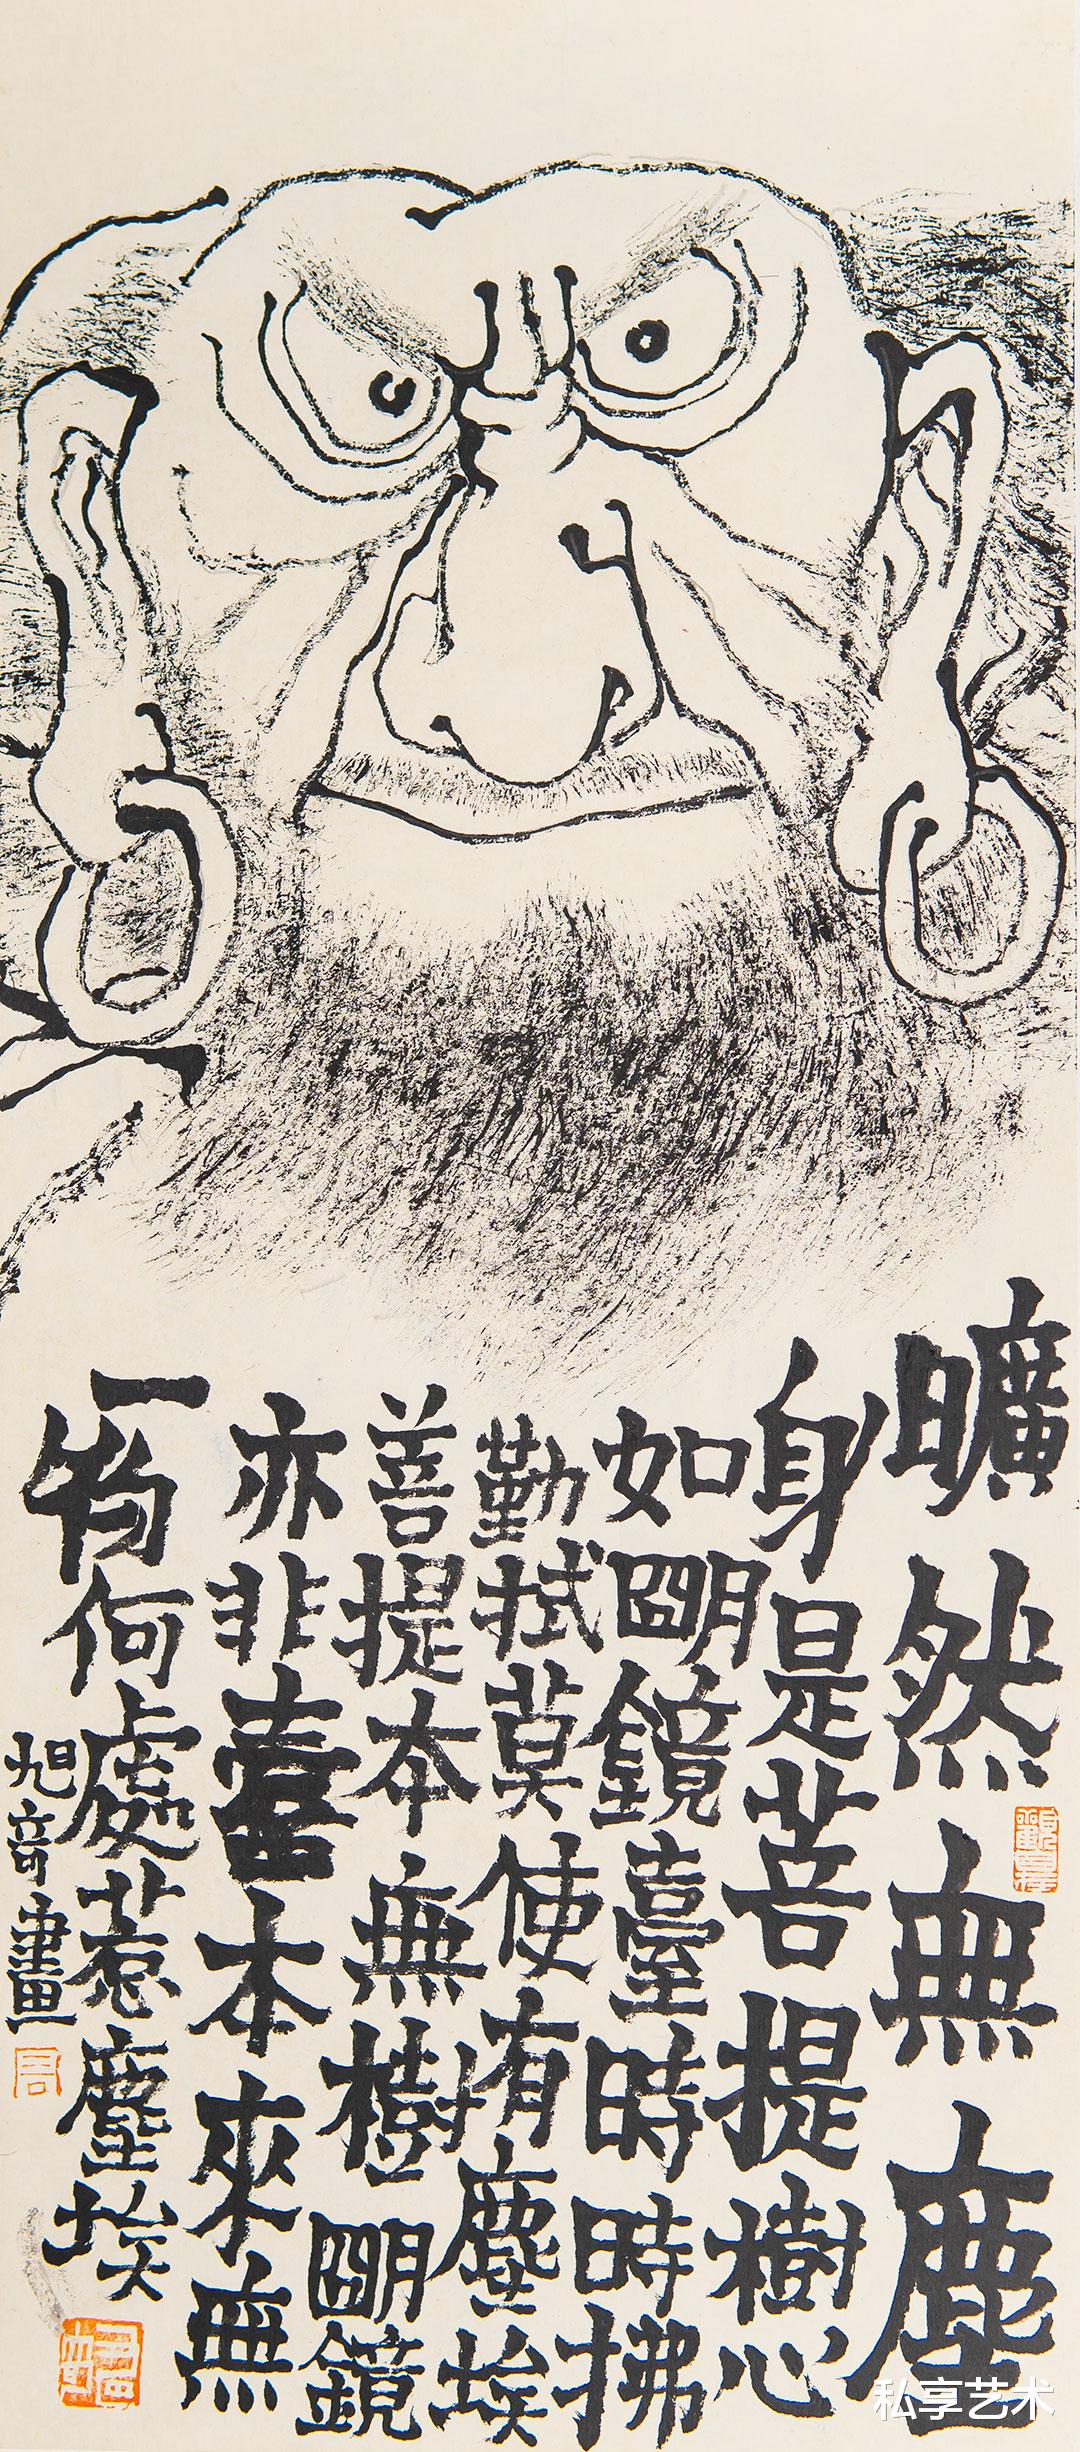 曠然無塵
身是菩提樹心
如朙鏡臺時時拂
勤拭莫使有塵埃
菩提本無樹朙鏡
亦非臺本來無
一物何處惹塵埃
旭竒畫
周
私享艺术